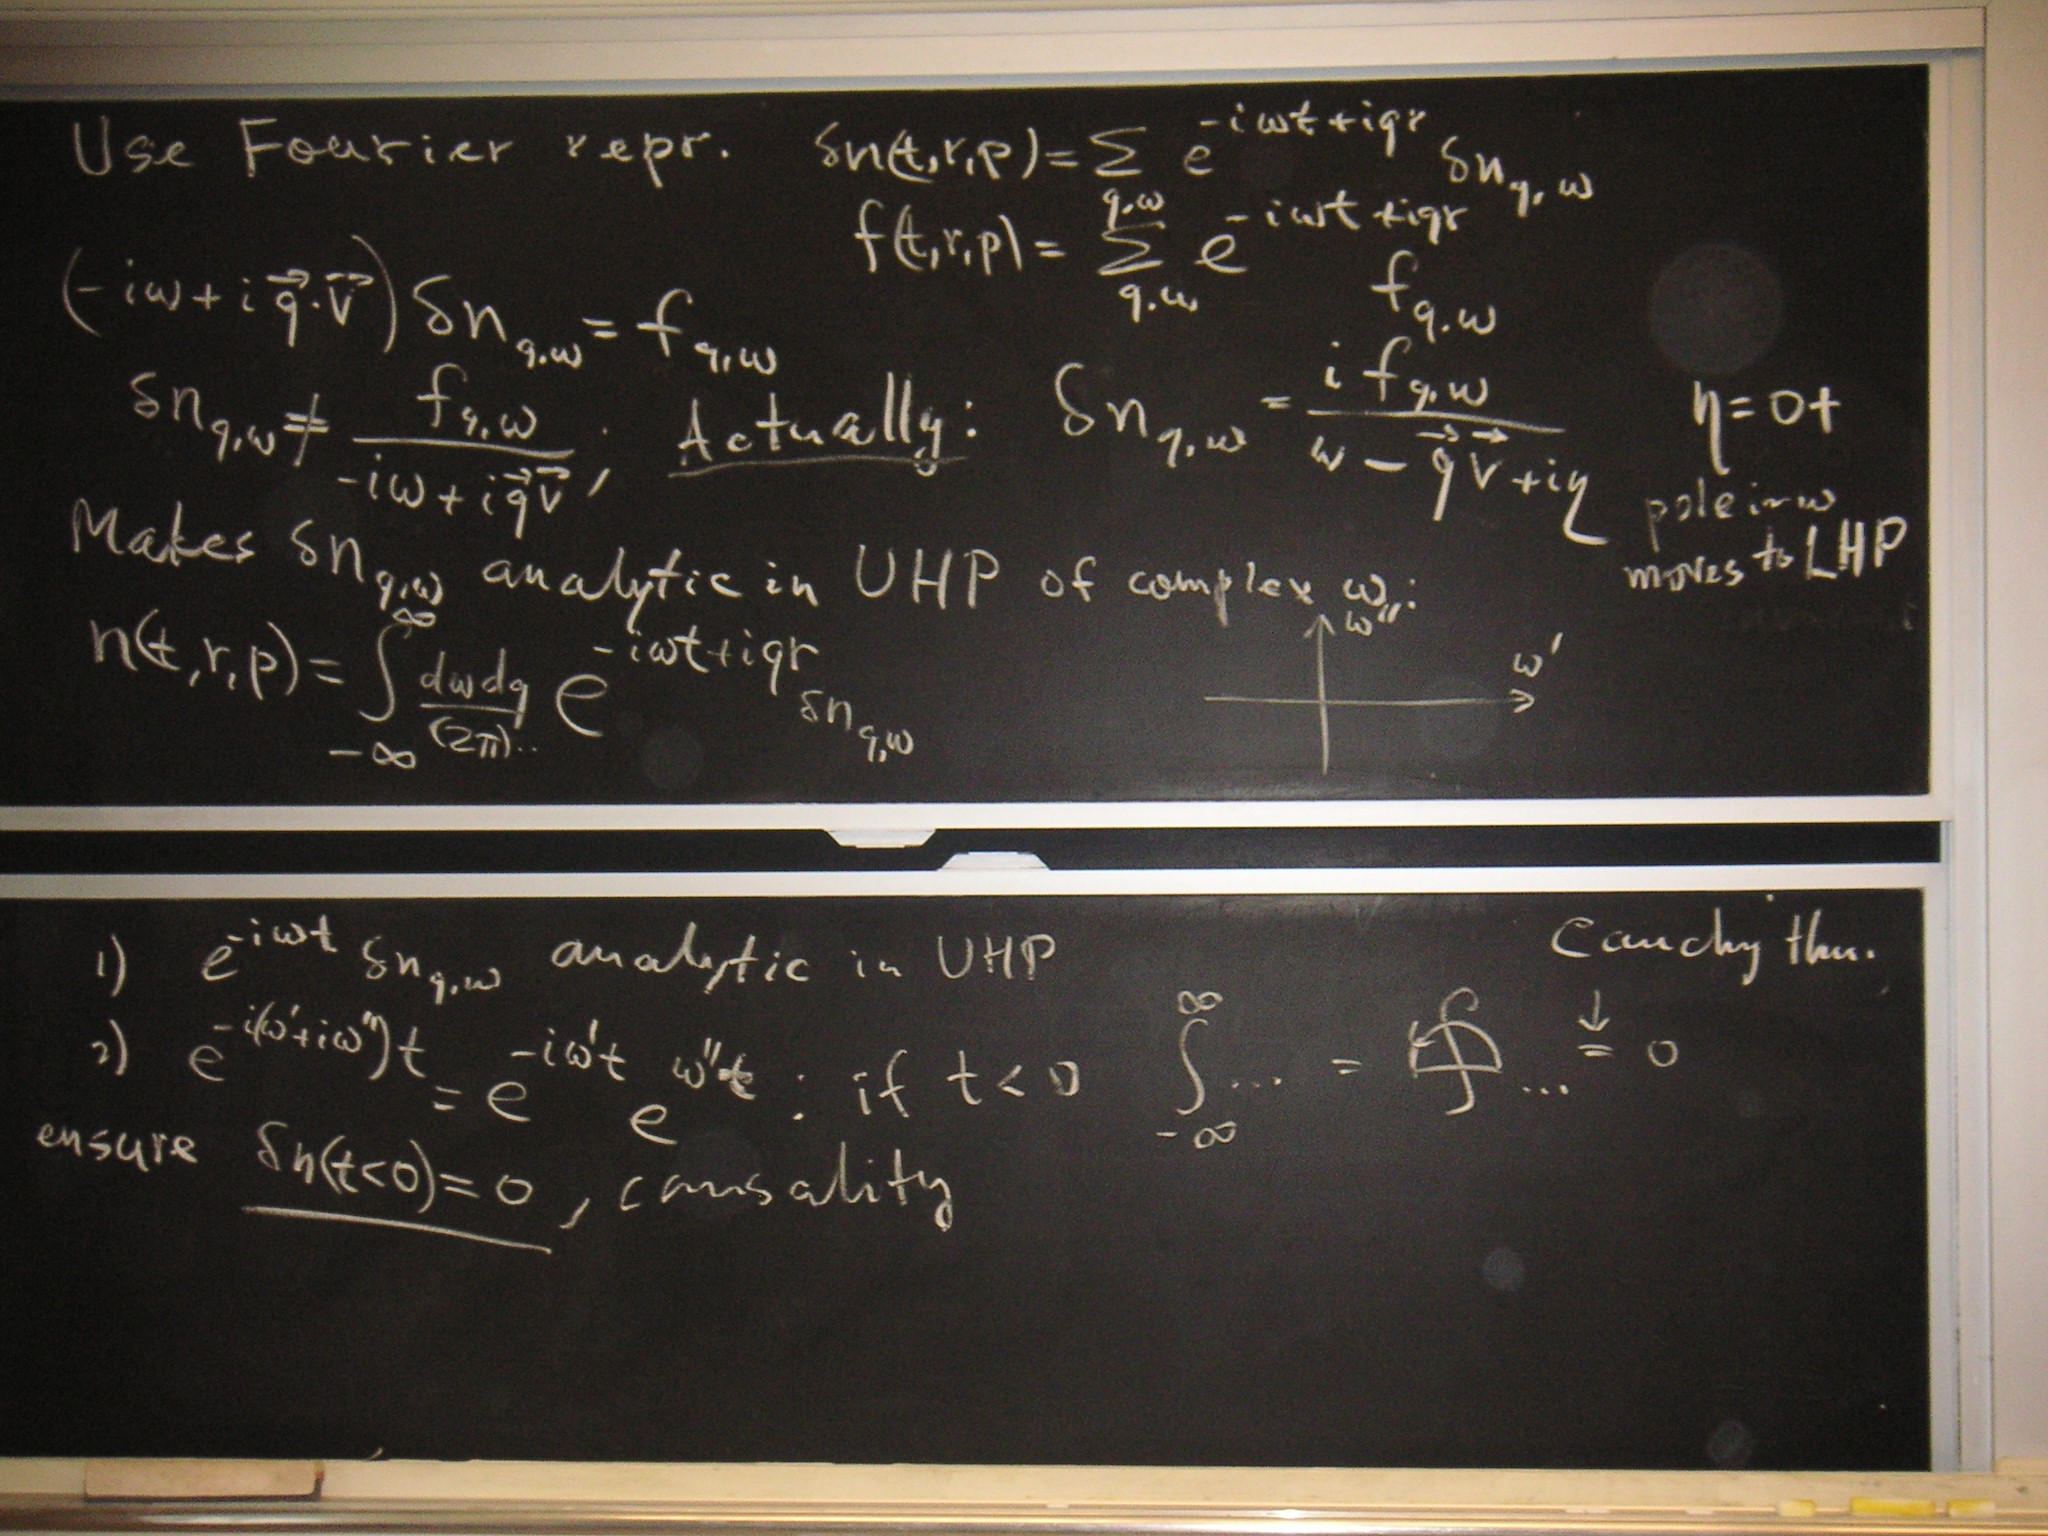 Use Fourier repr. δn(t,r,p) = Σ_{q,ω} e^{-iωt+iqr} δn_{q,ω}
f(t,r,p) = Σ_{q,ω} e^{-iωt+iqr} f_{q,ω}
(-iω + i q⃗·v⃗) δn_{q,ω} = f_{q,ω}
δn_{q,ω} ≠ f_{q,ω} / (-iω + i q⃗ v⃗) ; Actually: δn_{q,ω} = i f_{q,ω} / (ω - q⃗ v⃗ + iη) η = 0+
pole in ω
moves to LHP
Makes δn_{q,ω} analytic in UHP of complex ω:
n(t,r,p) = ∫_{-∞}^{∞} dωdq/(2π).. e^{-iωt+iqr} δn_{q,ω} ω'' ω'
1) e^{-iωt} δn_{q,ω} analytic in UHP Cauchy thm.
2) e^{-i(ω'+iω'')t} = e^{-iω't} e^{ω''t} : if t<0 ∫_{-∞}^{∞} ... = ∮ ... = 0
ensure δn(t<0) = 0, causality